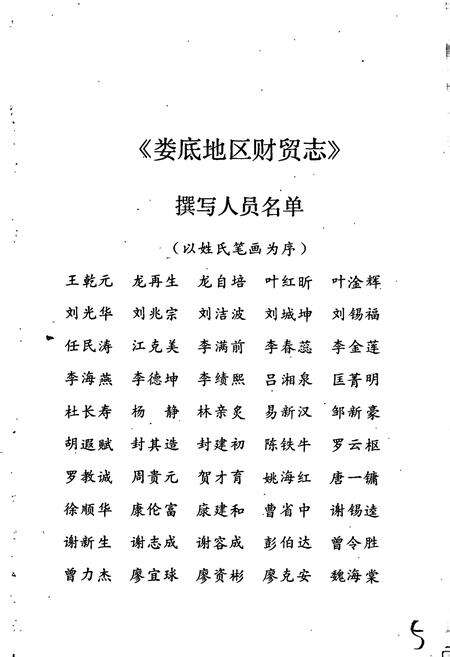 《娄底地区财贸志》
撰写人员名单
(以姓氏笔画为序)
王乾元 龙再生 龙自培 叶红昕 叶淦辉
刘光华 刘兆宗 刘洁波 刘城坤 刘锡福
任民涛 江克美 李满前 李春蕊 李金莲
李海燕 李德坤 李绩熙 吕湘泉 匡菁明
杜长寿 杨静 林亲炙 易新汉 邹新豪
胡遐赋 封其造 封建初 陈铁牛 罗云枢
罗教诚 周贵元 贺才育 姚海红 唐一镛
徐顺华 康伦富 康建和 曹省中 谢锡逵
谢新生 谢志成 谢容成 彭伯达 曾令胜
曾力杰 廖宜球 廖资彬 廖克安 魏海棠
5